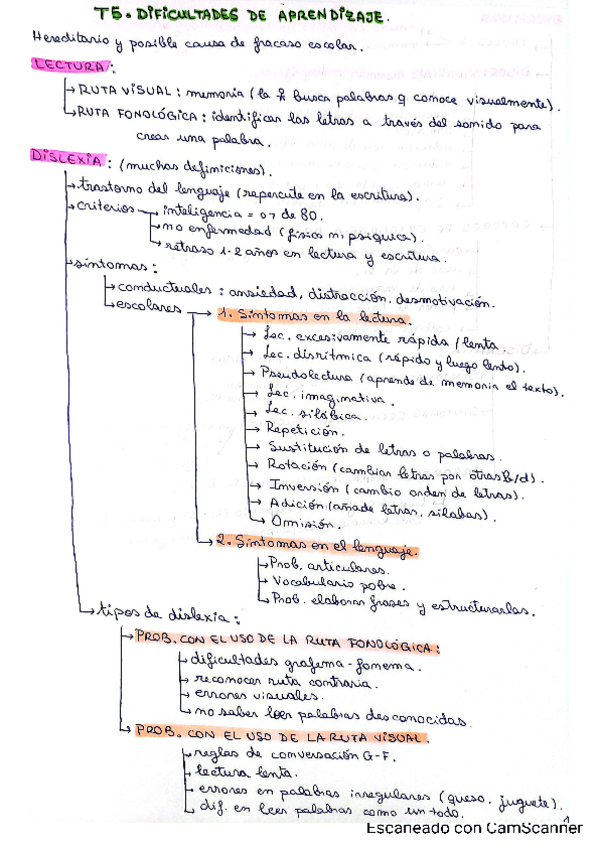 T5. DIFICULTADES DE APRENDIZAJE.
Hereditario y posible causa de fracaso escolar.
LECTURA:
RUTA VISUAL: memoria (la busca palabras q conoce visualmente).
RUTA FONOLÓGICA: identificar las letras a través del sonido para
crear una palabra.
DISLEXIA: (muchas definiciones).
trastorno del lenguaje (repercute en la escritura).
criterios
inteligencia = o > de 80.
no enfermedad (física ni psíquica).
retraso 1-2 años en lectura y escritura.
síntomas:
conductuales: ansiedad, distracción, desmotivación.
escolares
1. Síntomas en la lectura.
Lec. excesivamente rápida / lenta.
Lec. disrítmica (rápido y luego lento).
Pseudolectura (aprende de memoria el texto).
Lec. imaginativa.
Lec. silábica.
Repetición.
Sustitución de letras o palabras.
Rotación (cambiar letras por otras b/d).
Inversión (cambio orden de letras).
Adición (añade letras, sílabas).
Omisión.
2. Síntomas en el lenguaje.
Prob. articulares.
Vocabulario pobre.
Prob. elaborar frases y estructurarlas.
tipos de dislexia:
PROB. CON EL USO DE LA RUTA FONOLÓGICA:
dificultades grafema-fonema.
reconocer ruta contraria.
errores visuales.
no saber leer palabras desconocidas.
PROB. CON EL USO DE LA RUTA VISUAL.
reglas de conversación G-F.
lectura lenta.
errores en palabras irregulares (queso, juguete).
dif. en leer palabras como un todo.
1
Escaneado con CamScanner